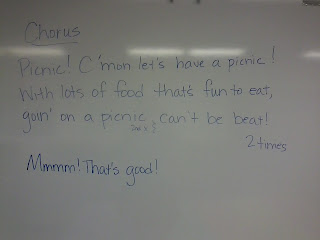 Chorus
Picnic! C'mon let's have a picnic!
With lots of food that's fun to eat,
goin' on a picnic can't be beat!
2 times
Mmmm! That's good!